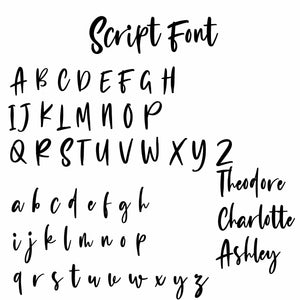 Script Font
A B C D E F G H
I J K L M N O P
Q R S T U V W X Y Z
Theodore
Charlotte
Ashley
a b c d e f g h
i j k l m n o p
q r s t u v w x y z